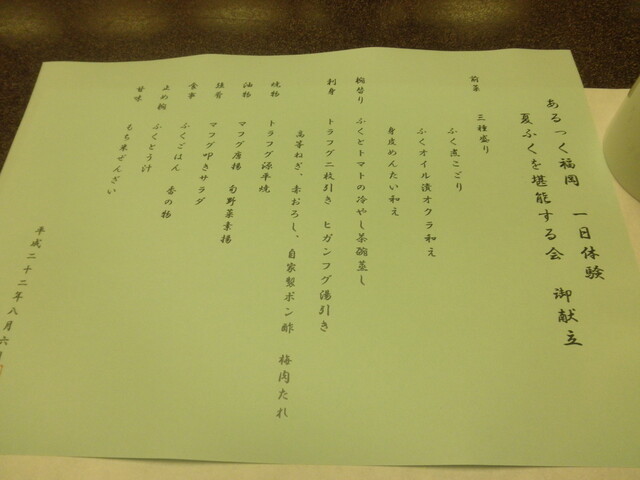 あるっく福岡 一日体験
夏ふくを堪能する会 御献立
前菜 三種盛り
ふく煮こごり
ふくオイル漬オクラ和え
身皮めんたい和え
椀替り ふくとトマトの冷やし茶碗蒸し
刺身 トラフグ二枚引き ヒガンフグ湯引き
高等ねぎ、赤おろし、自家製ポン酢 梅肉たれ
焼物 トラフグ源平焼
油物 マフグ唐揚 旬野菜素揚
強肴 マフグ叩きサラダ
食事 ふくごはん 香の物
止め椀 ふくとう汁
甘味 もち米ぜんざい
平成二十二年八月六